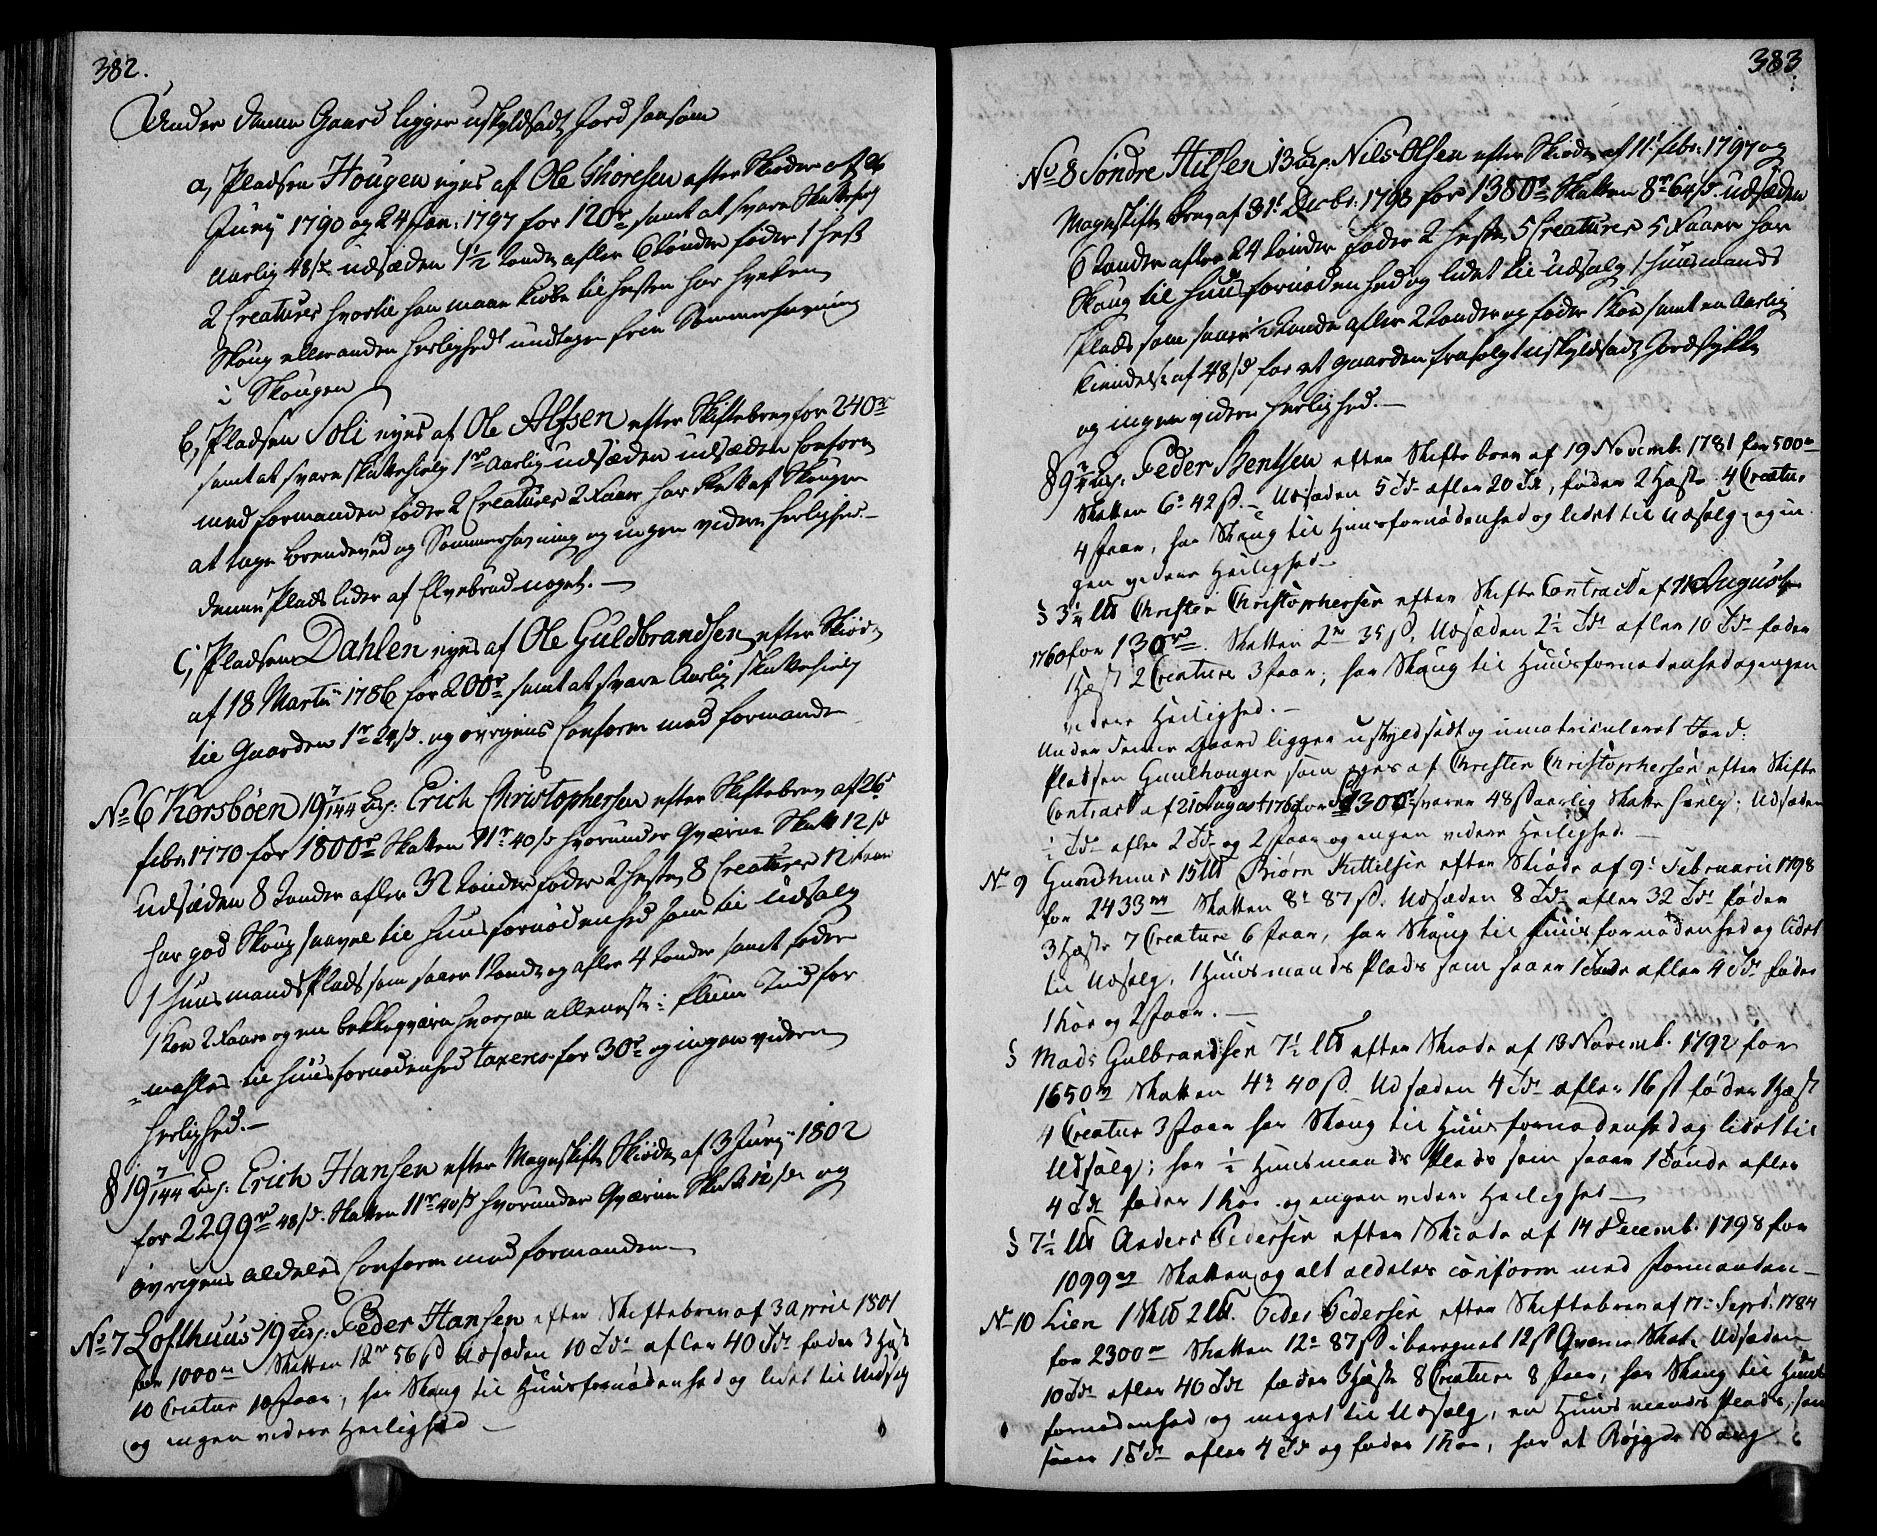 382.
Under denne Gaard ligger uskyldsadt Jord saasom
a, Pladsen Hougen eyes af Ole Thoresen efter Skiøder af 26
Juny 1790 og 24 Jan: 1797 for 120r samt at svare Skattehielp
Aarlig 48 s. udsæden 1½ Tønde afler 6 Tønder føder 1 Hest
2 Creaturer hvortil han maae kiøbe til Hesten har hverken
Skoug eller anden Herlighed undtagen frie Sommerhavning
i Skougen
b, Pladsen Soli eyes af Ole Alfsen efter Skiftebrev for 240r
samt at svare Skattehielp 1r Aarlig udsæden udsæden Conform
med formanden føder 2 Creaturer 2 Faar har Ret af Skougen
at tage Brendeved og Sommerhavning og ingen videre Herlighed.—
denne Plads lider af Elvebrud noget.—
c, Pladsen Dahlen eyes af Ole Guldbrandsen efter Skiøde
af 18 Martii 1786 for 200r samt at svare Aarlig Skattehielp
til Gaarden 1r 24 s. og øvrigens Conform med formanden
No 6 Korsbøen 19 7/144 Lisp. Erich Christophersen efter Skiftebrev af 26
febr. 1770 for 1800r Skatten 11r 40 s hvorunder Qværne Skatt 12 s
udsæden 8 Tønder afler 32 Tønder føder 2 Heste 8 Creaturer 12 Faar
har god Skoug saavel til Huusfornødenhed som til Udsalg
1 HuusmandsPlads som saaer 1 Tønde og afler 4 Tønder samt føder
1 Koe 2 Faar og en bekkeqværn hvorpaa alleneste i flom Tiid for
-mahles til Huusfornødenhed taxeres for 30r og ingen videre
Herlighed.—
§ 19 7/144 Lisp. Erich Hansen efter Mageskifte Skiøde af 3 Juny 1802
for 2299r 48 s. Skatten 11r 40 s hvorunder Qværne Skatt 12 s og
øvrigens aldeles Conform med formanden
No 7 Lofthuus 19 Lisp. Peder Hansen efter Skiftebrev af 3 April 1801
for 1000r Skatten 12r 56 s Udsæden 10 Tdr afler 40 Tdr føder 3 Heste
10 Creatur 10 Faar, har Skoug til Huusfornødenhed og lidet til Udsalg
og ingen videre Herlighed —
383
No 8 Søndre Hilsen 13 Lisp. Nils Olsen efter Skiøde af 11t febr. 1797 og
Mageskifte brev af 31t Decbr: 1798 for 1380r Skatten 8r 64 s. udsæden
6 Tønder afler 24 Tønder føder 2 Heste 5 Creaturer 5 Faar har
Skoug til Huusfornødenhed og lidet til Udsalg 1 Huusmands
Plads som saaer ½ Tønde afler 2 Tønder og føder 1 Koe samt en Aarlig
Kiendelse af 48 s for et gaarden frasolgt uskyldsadt Jordstykke
og ingen videre Herlighed.—
§ 9 Lisp. Peder Bentsen efter Skiftebrev af 19 Novemb. 1781 for 500r
Skatten 6r 42 s.— Udsæden 5 Tdr afler 20 Tdr, føder 2 Heste 4 Creatur
4 Faar, har Skoug til Huusfornødenhed og lidet til Udsalg og in-
gen videre Herlighed—
§ 3½ Lb Christen Christophersen efter Skifte Contract af 21 August
1760 for 130r. Skatten 2r 35 s. Udsæden 2½ Tdr afler 10 Tdr føder
1 Hest 2 Creature 3 Faar, har Skoug til Huusfornødenhed og ingen
videre Herlighed.—
Under denne Gaard ligger uskyldsadt og umatriculeret Jord:
Pladsen Gunlhougen som eyes af Christen Christophersen efter Skifte
Contract af 21 August 1760 for 1300r svarer 48 s aarlig Skatte hielp; Udsæden
½ Tdr afler 2 Tdr og 2 Faar og ingen videre Herlighed.—
No 9 Gundhuus 15 Lb Biørn Kittilsen efter Skiøde af 9t Februarii 1798
for 2433r Skatten 8r 87 s. Udsæden 8 Tdr afler 32 Tdr føder
3 Heste 7 Creature 6 Faar, har Skoug til Huusfornødenhed og lidet
til Udsalg, 1 Huusmands Plads som saaer 1 Tønde afler 4 Tdr føder
1 Koe og 2 Faar.—
§ Mads Gulbrandsen 7½ Lb efter Skiøde af 13 Novemb. 1792 for
1650r Skatten 4r 40 s. Udsæden 4 Tdr afler 16 st føder 1 Hest
4 Creatur 3 Faar har Skoug til Huusfornødenhed og lidet til
Udsalg; har ½ Huusmands Plads som saaer 1 Tønde afler
4 Tdr føder 1 Koe og ingen videre Herlighed—
§ 7½ Lb Anders Pedersen efter Skiøde af 14 Decemb. 1798 for
1099r Skatten og alt aldeles conform med Formanden—
No 10 Lien 1 Skb 2 Lb. Peder Pedersen efter Skiftebrev af 17 Sept. 1784
for 2300r Skatten 12r 87 s iberegnet 12 s Qværne Skat. Udsæden
10 Tdr afler 40 Tdr føder 3 Heste 8 Creature 8 Faar, har Skoug til Huus
fornødenhed og meget til Udsalg, en Huusmands Plads, som
saaer 1 Tdr afler 4 Tdr og føder 1 Koe, har et Røgnings Skoug